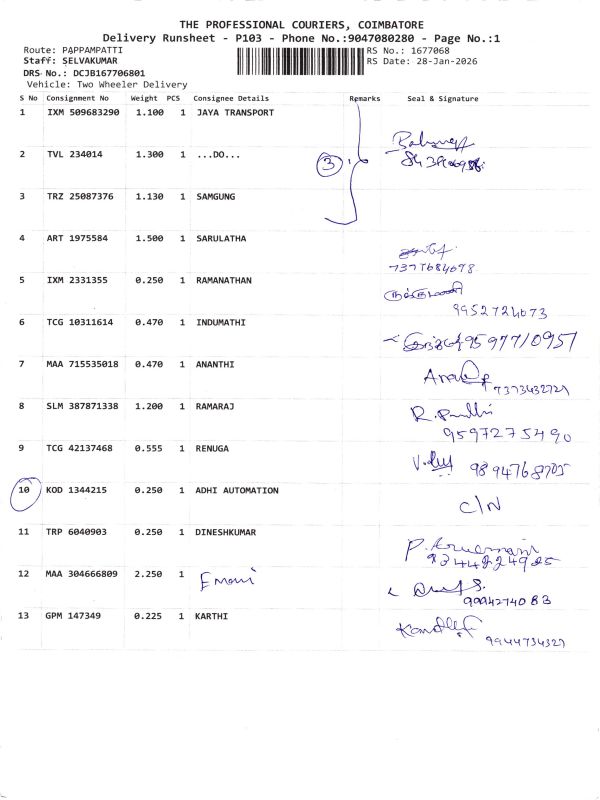 THE PROFESSIONAL COURIERS, COIMBATORE
Delivery Runsheet - P103 - Phone No.:9047080280 - Page No.:1
Route: PAPPAMPATTI
RS No.: 1677068
Staff: SELVAKUMAR
RS Date: 28-Jan-2026
DRS No.: DCJB167706801
Vehicle: Two Wheeler Delivery
S No Consignment No Weight PCS Consignee Details Remarks Seal & Signature
1 IXM 509683290 1.100 1 JAYA TRANSPORT
2 TVL 234014 1.300 1 ...DO... 3
3 TRZ 25087376 1.130 1 SAMGUNG
4 ART 1975584 1.500 1 SARULATHA
7377684678
5 IXM 2331355 0.250 1 RAMANATHAN
9952724673
6 TCG 10311614 0.470 1 INDUMATHI
9597710957
7 MAA 715535018 0.470 1 ANANTHI
7373432721
8 SLM 387871338 1.200 1 RAMARAJ
9597275490
9 TCG 42137468 0.555 1 RENUGA
9894768705
10 KOD 1344215 0.250 1 ADHI AUTOMATION C/N
11 TRP 6040903 0.250 1 DINESHKUMAR
9344824985
12 MAA 304666809 2.250 1
9994274083
13 GPM 147349 0.225 1 KARTHI
9944734327